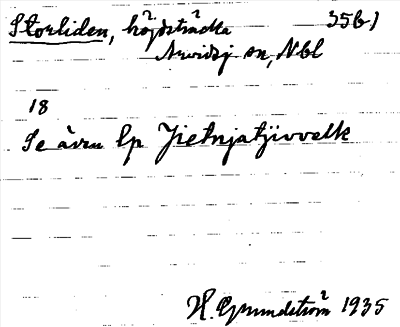 Storliden, höjdsträcka 35b1
Arvidsj sn, Nbl
18
Se även lp Jietnjatjivvalk
H. Grundström 1935